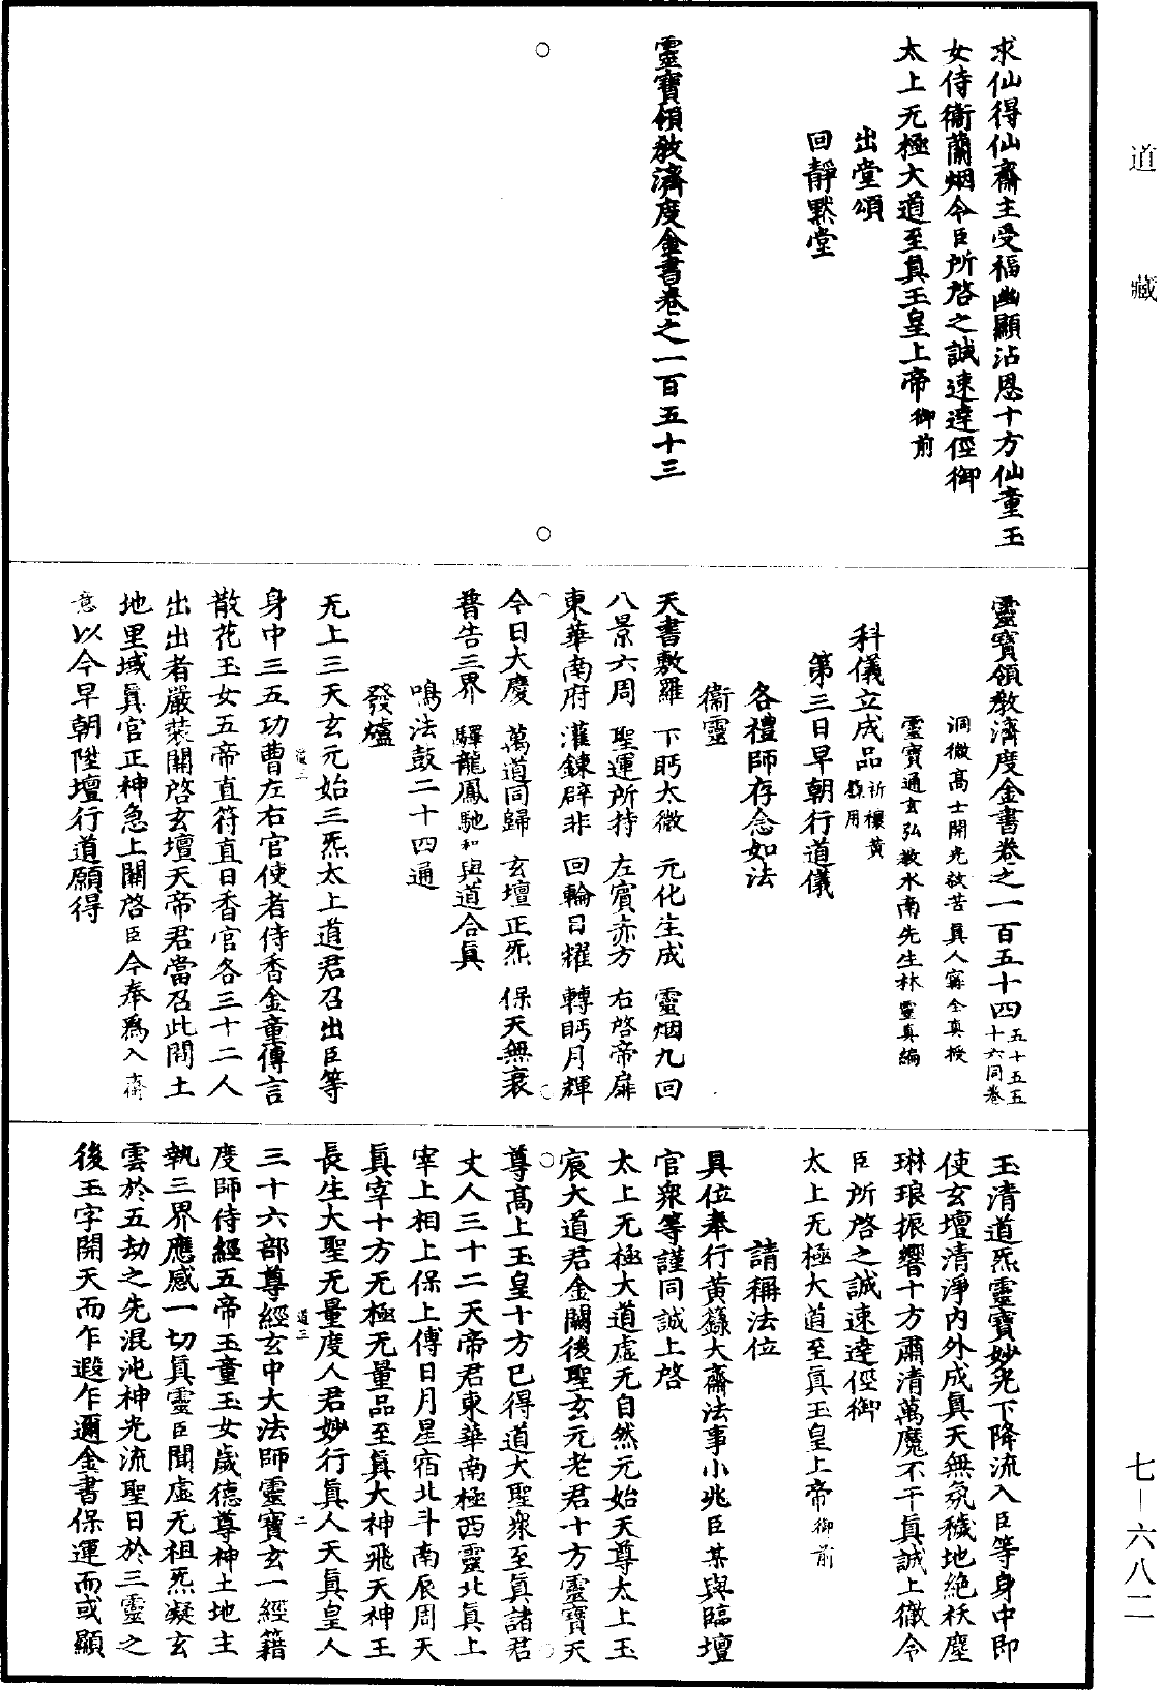 道藏
求仙得仙齋主受福幽顯沾恩十方仙童玉
女侍衞蘭烟令臣所啓之誠速達徑御
太上无極大道至眞玉皇上帝御前
出堂頌
回靜默堂
靈寶領敎濟度金書卷之一百五十三
靈寶領敎濟度金書卷之一百五十四五十五五十六同卷
洞微高士開光救苦眞人寗全真授
靈寶通玄弘敎水南先生林靈真編
科儀立成品祈禳黃籙用
第三日早朝行道儀
各禮師存念如法
衞靈
天書敷羅 下眄太微 元化生成 靈烟九回
八景六周 聖運所持 左賓赤方 右啓帝扉
東華南府 灌鍊辟非 回輪日耀 轉眄月輝
今日大慶 萬道同歸 玄壇正炁 保天無衰
普告三界 驛龍鳳馳和與道合眞
鳴法鼓二十四通
發爐
无上三天玄元始三炁太上道君召出臣等
身中三五功曹左右官使者侍香金童傳言
散花玉女五帝直符直日香官各三十二人
出出者嚴裝關啓玄壇天帝君當召此間土
地里域眞官正神急上關啓臣今奉爲入齋
意以今早朝陞壇行道願得
玉清道炁靈寶妙光下降流入臣等身中即
使玄壇清淨內外成眞天無氛穢地絕祅塵
琳琅振響十方肅清萬魔不干眞誠上徹令
臣所啓之誠速達徑御
太上无極大道至眞玉皇上帝御前
請稱法位
具位奉行黃籙大齋法事小兆臣某與臨壇
官衆等謹同誠上啓
太上无極大道虛无自然元始天尊太上玉
宸大道君金闕後聖玄元老君十方靈寶天
尊高上玉皇十方已得道大聖衆至眞諸君
丈人三十二天帝君東華南極西靈北眞上
宰上相上保上傅日月星宿北斗南辰周天
眞宰十方无極无量品至眞大神飛天神王
長生大聖无量度人君妙行眞人天眞皇人
三十六部尊經玄中大法師靈寶玄一經籍
度師侍經五帝玉童玉女歲德尊神土地主
執三界應感一切眞靈臣聞虛无祖炁凝玄
雲於五劫之先混沌神光流聖日於三靈之
後玉字開天而乍遐乍邇金書保運而或顯
七－六八二